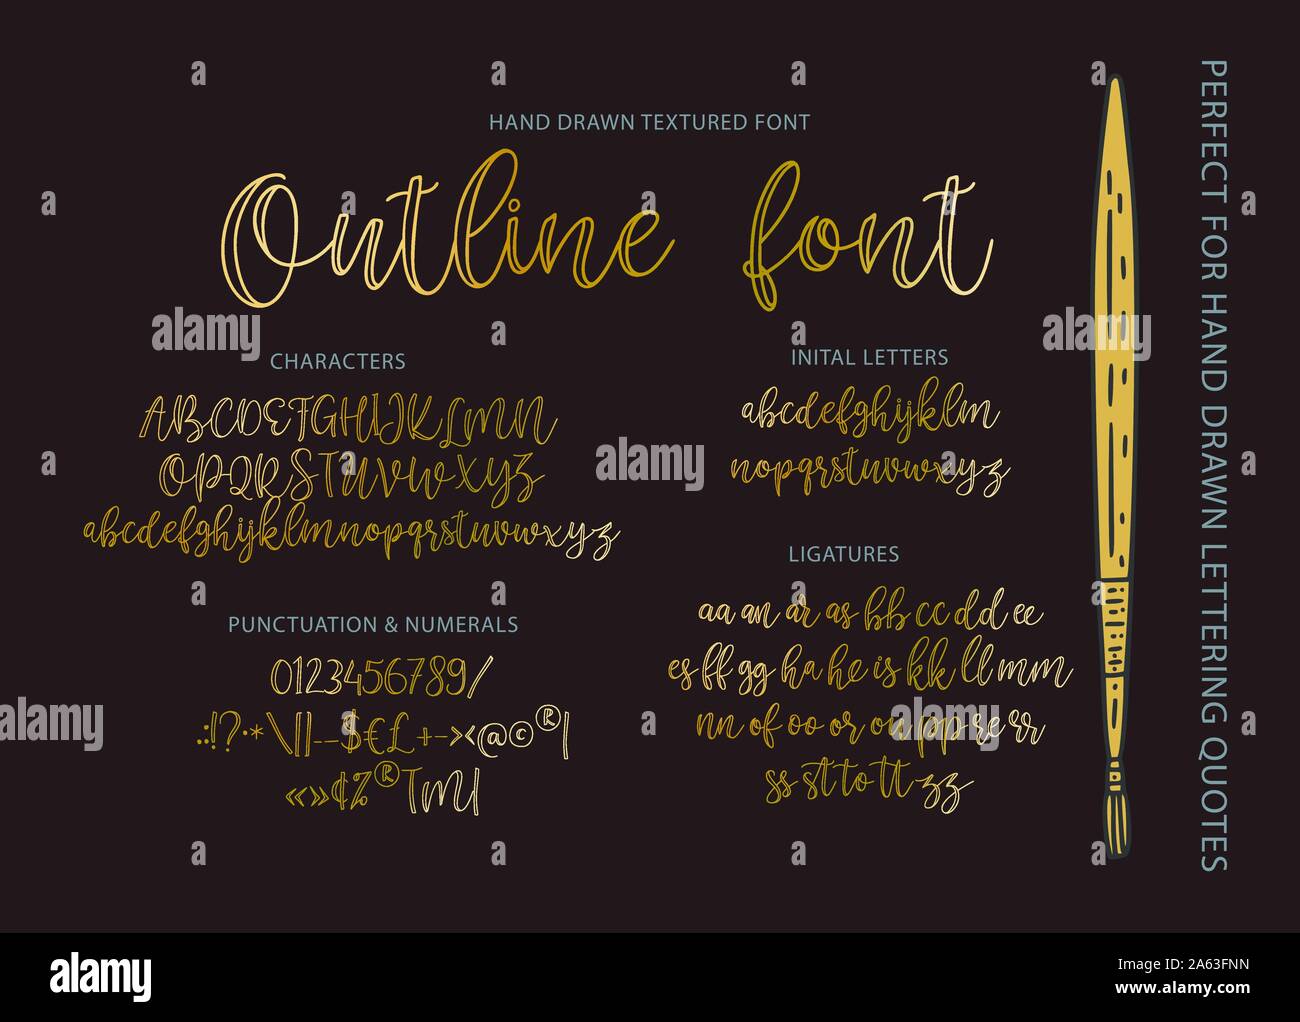 HAND DRAWN TEXTURED FONT
Outline font
CHARACTERS
ABCDEFGHIJKLMN
OPQRSTUVWXYZ
abcdefghijklmnopqrstuvwxyz
PUNCTUATION & NUMERALS
0123456789/
.:!?·*\||--$€£+-><@©®|
«»¢%®TM|
INITAL LETTERS
abcdefghijklm
nopqrstuvwxyz
LIGATURES
aa an ar as bb cc dd ee
es ff gg ha he is kk ll mm
nn of oo or on pp re rr
ss st to tt zz
PERFECT FOR HAND DRAWN LETTERING QUOTES
alamy
alamy
alamy
alamy
alamy
alamy
Image ID: 2A63FNN
www.alamy.com